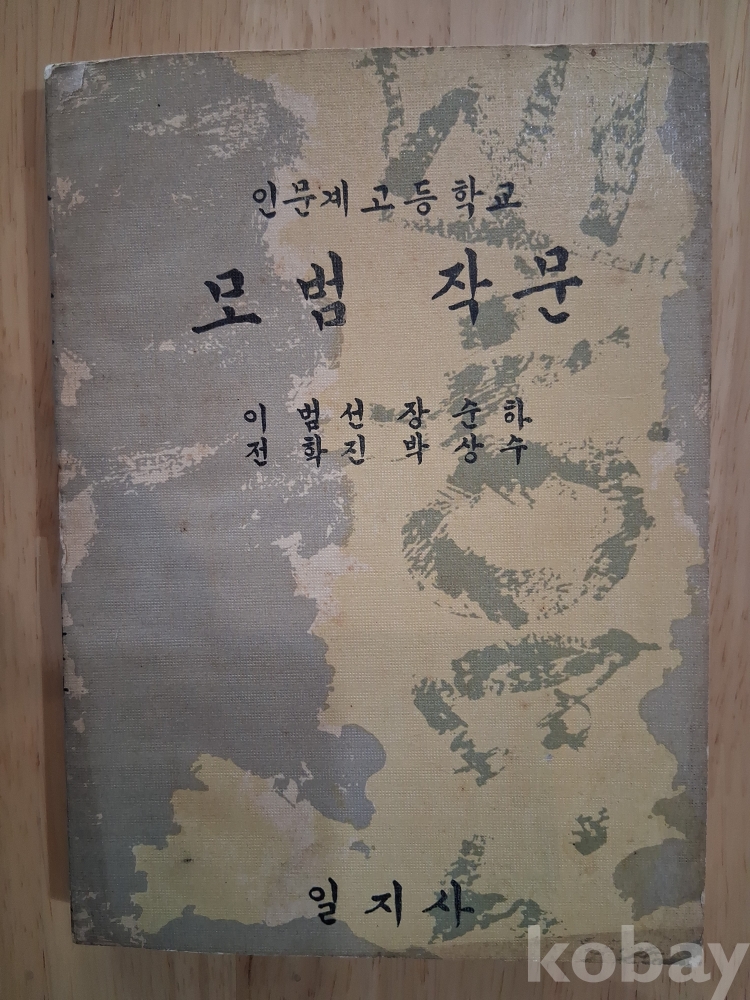 인문계 고등학교
모범 작문
이범선 장순하
전화진 박상수
일지사
kobay